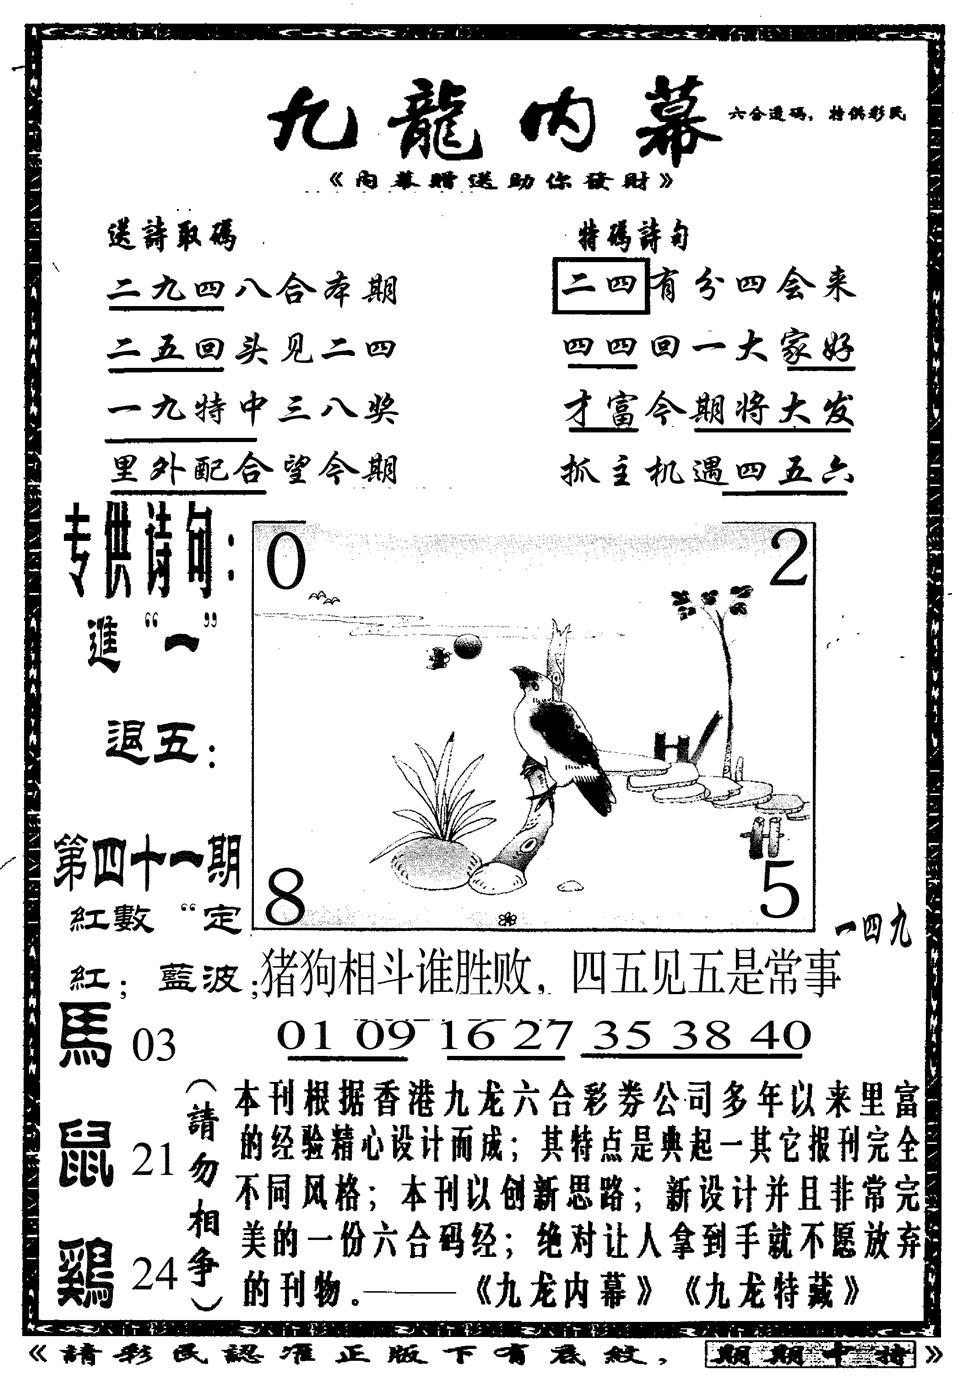 九龍内幕
六合透码，特供彩民
《内幕贈送助你發財》
送詩取碼
二九四八合本期
二五回头见二四
一九特中三八奖
里外配合望今期
特碼詩句
二四有分四会来
四四回一大家好
才富今期将大发
抓主机遇四五六
专供诗句：
進“一”
退五：
第四十一期
紅數“定
紅；藍波；
馬 03
鼠 21
鷄 24
（請勿相争）
0 2
8 5
一四九
猪狗相斗谁胜败，四五见五是常事
01 09 16 27 35 38 40
本刊根据香港九龙六合彩券公司多年以来里富
的经验精心设计而成；其特点是典起一其它报刊完全
不同风格；本刊以创新思路；新设计并且非常完
美的一份六合码经；绝对让人拿到手就不愿放弃
的刊物。———《九龙内幕》《九龙特藏》
《請彩民認准正版下有底紋，期期中特》